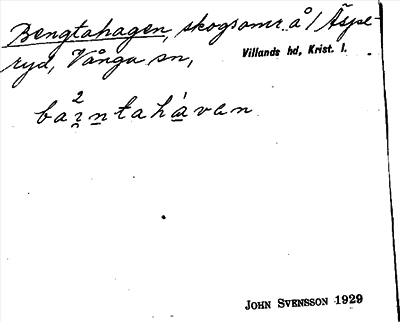 Bengtahagen, skogsomr. å / Äspe-
ryd, Vånga sn, Villands hd, Krist. l.
JOHN SVENSSON 1929